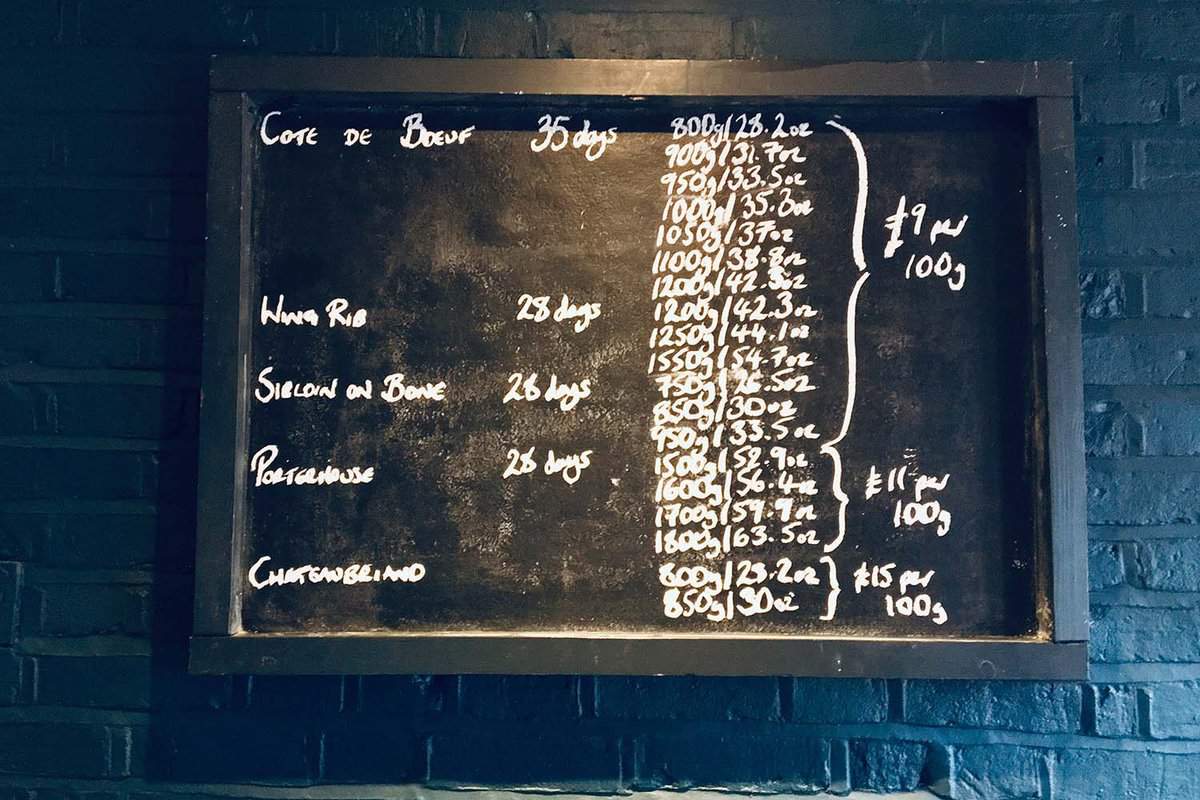 COTE DE BOEUF 35 days 800g/28.2oz
900g/31.7oz
950g/33.5oz
1000g/35.3oz
1050g/37oz £9 per
1100g/38.8oz 100g
1200g/42.3oz
WING RIB 28 days 1200g/42.3oz
1250g/44.1oz
1550g/54.7oz
SIRLOIN ON BONE 28 days 750g/26.5oz
850g/30oz
950g/33.5oz
PORTERHOUSE 28 days 1500g/52.9oz
1600g/56.4oz £11 per
1700g/59.9oz 100g
1800g/63.5oz
CHATEAUBRIAND 800g/28.2oz £15 per
850g/30oz 100g